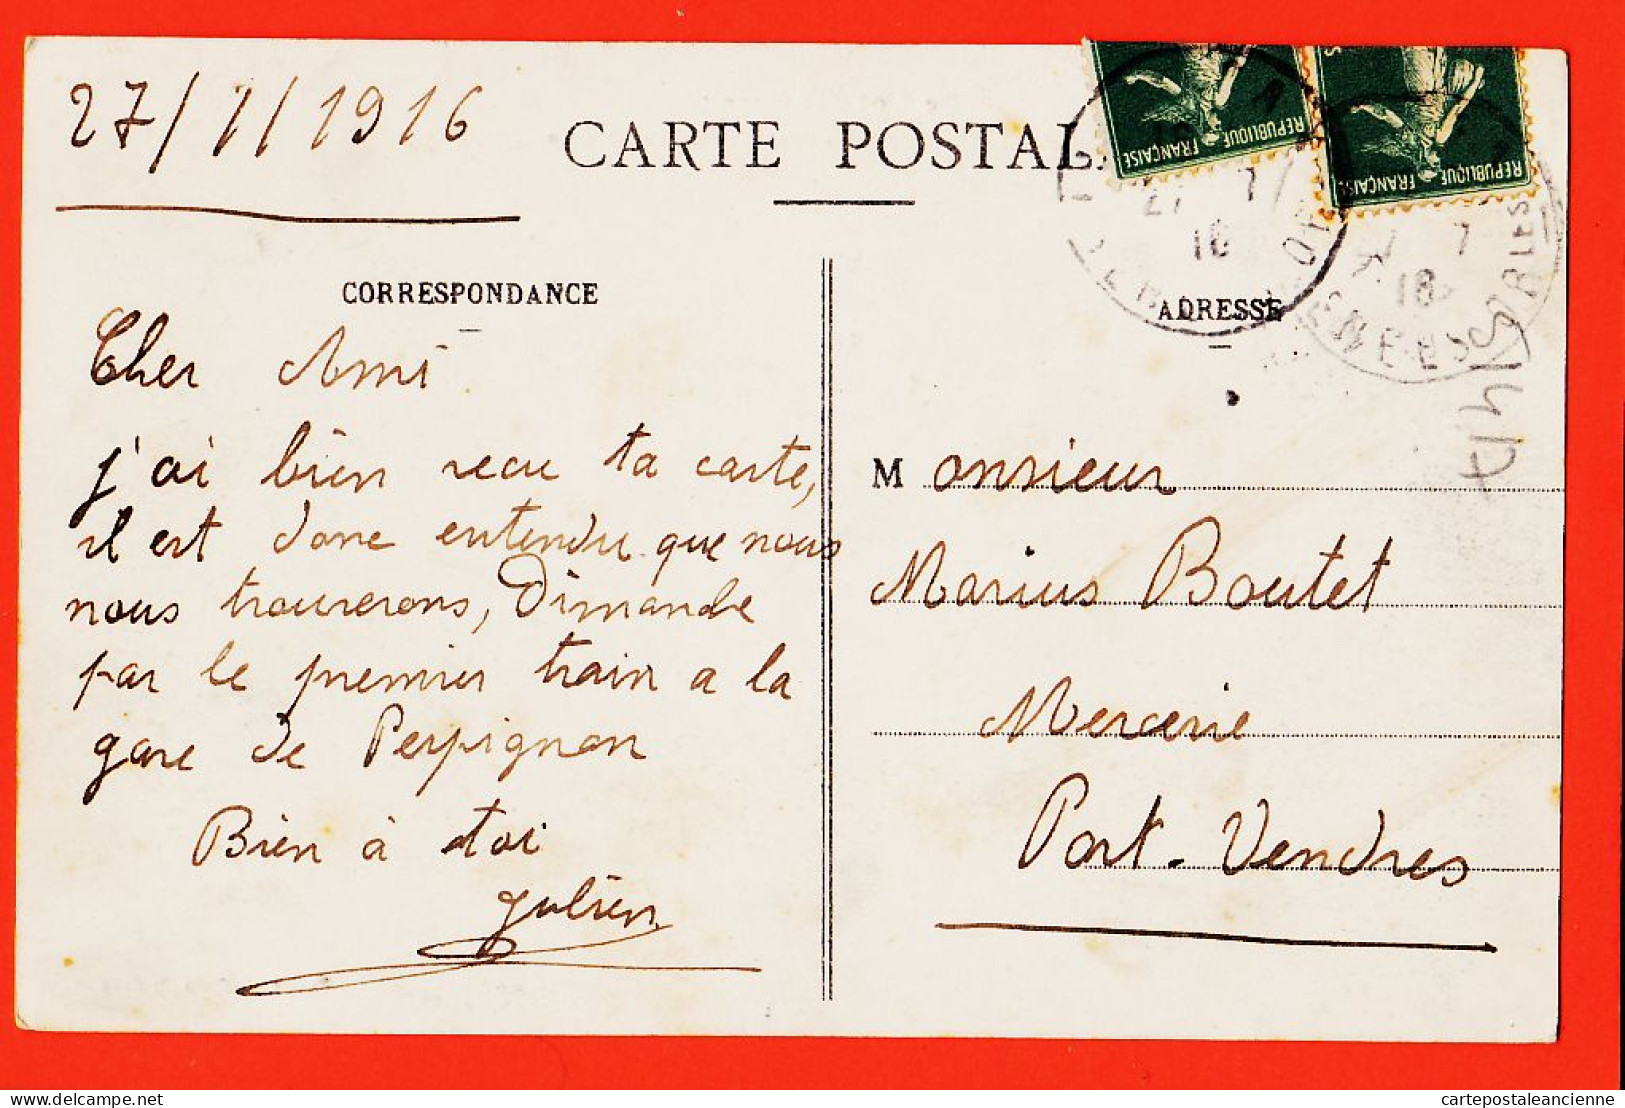 27/7/1916
CARTE POSTAL
REPUBLIQUE FRANÇAISE
REPUBLIQUE FRANÇAISE
CORRESPONDANCE
Cher Ami
j'ai bien recu ta carte,
il est donc entendu que nous
nous trouverons, Dimanche
par le premier train a la
gare de Perpignon
Bien à toi
Julien
ADRESSE
Monsieur
Marius Boutet
Mercerie
Port-Vendres
delcampe.net
cartepostaleancienne